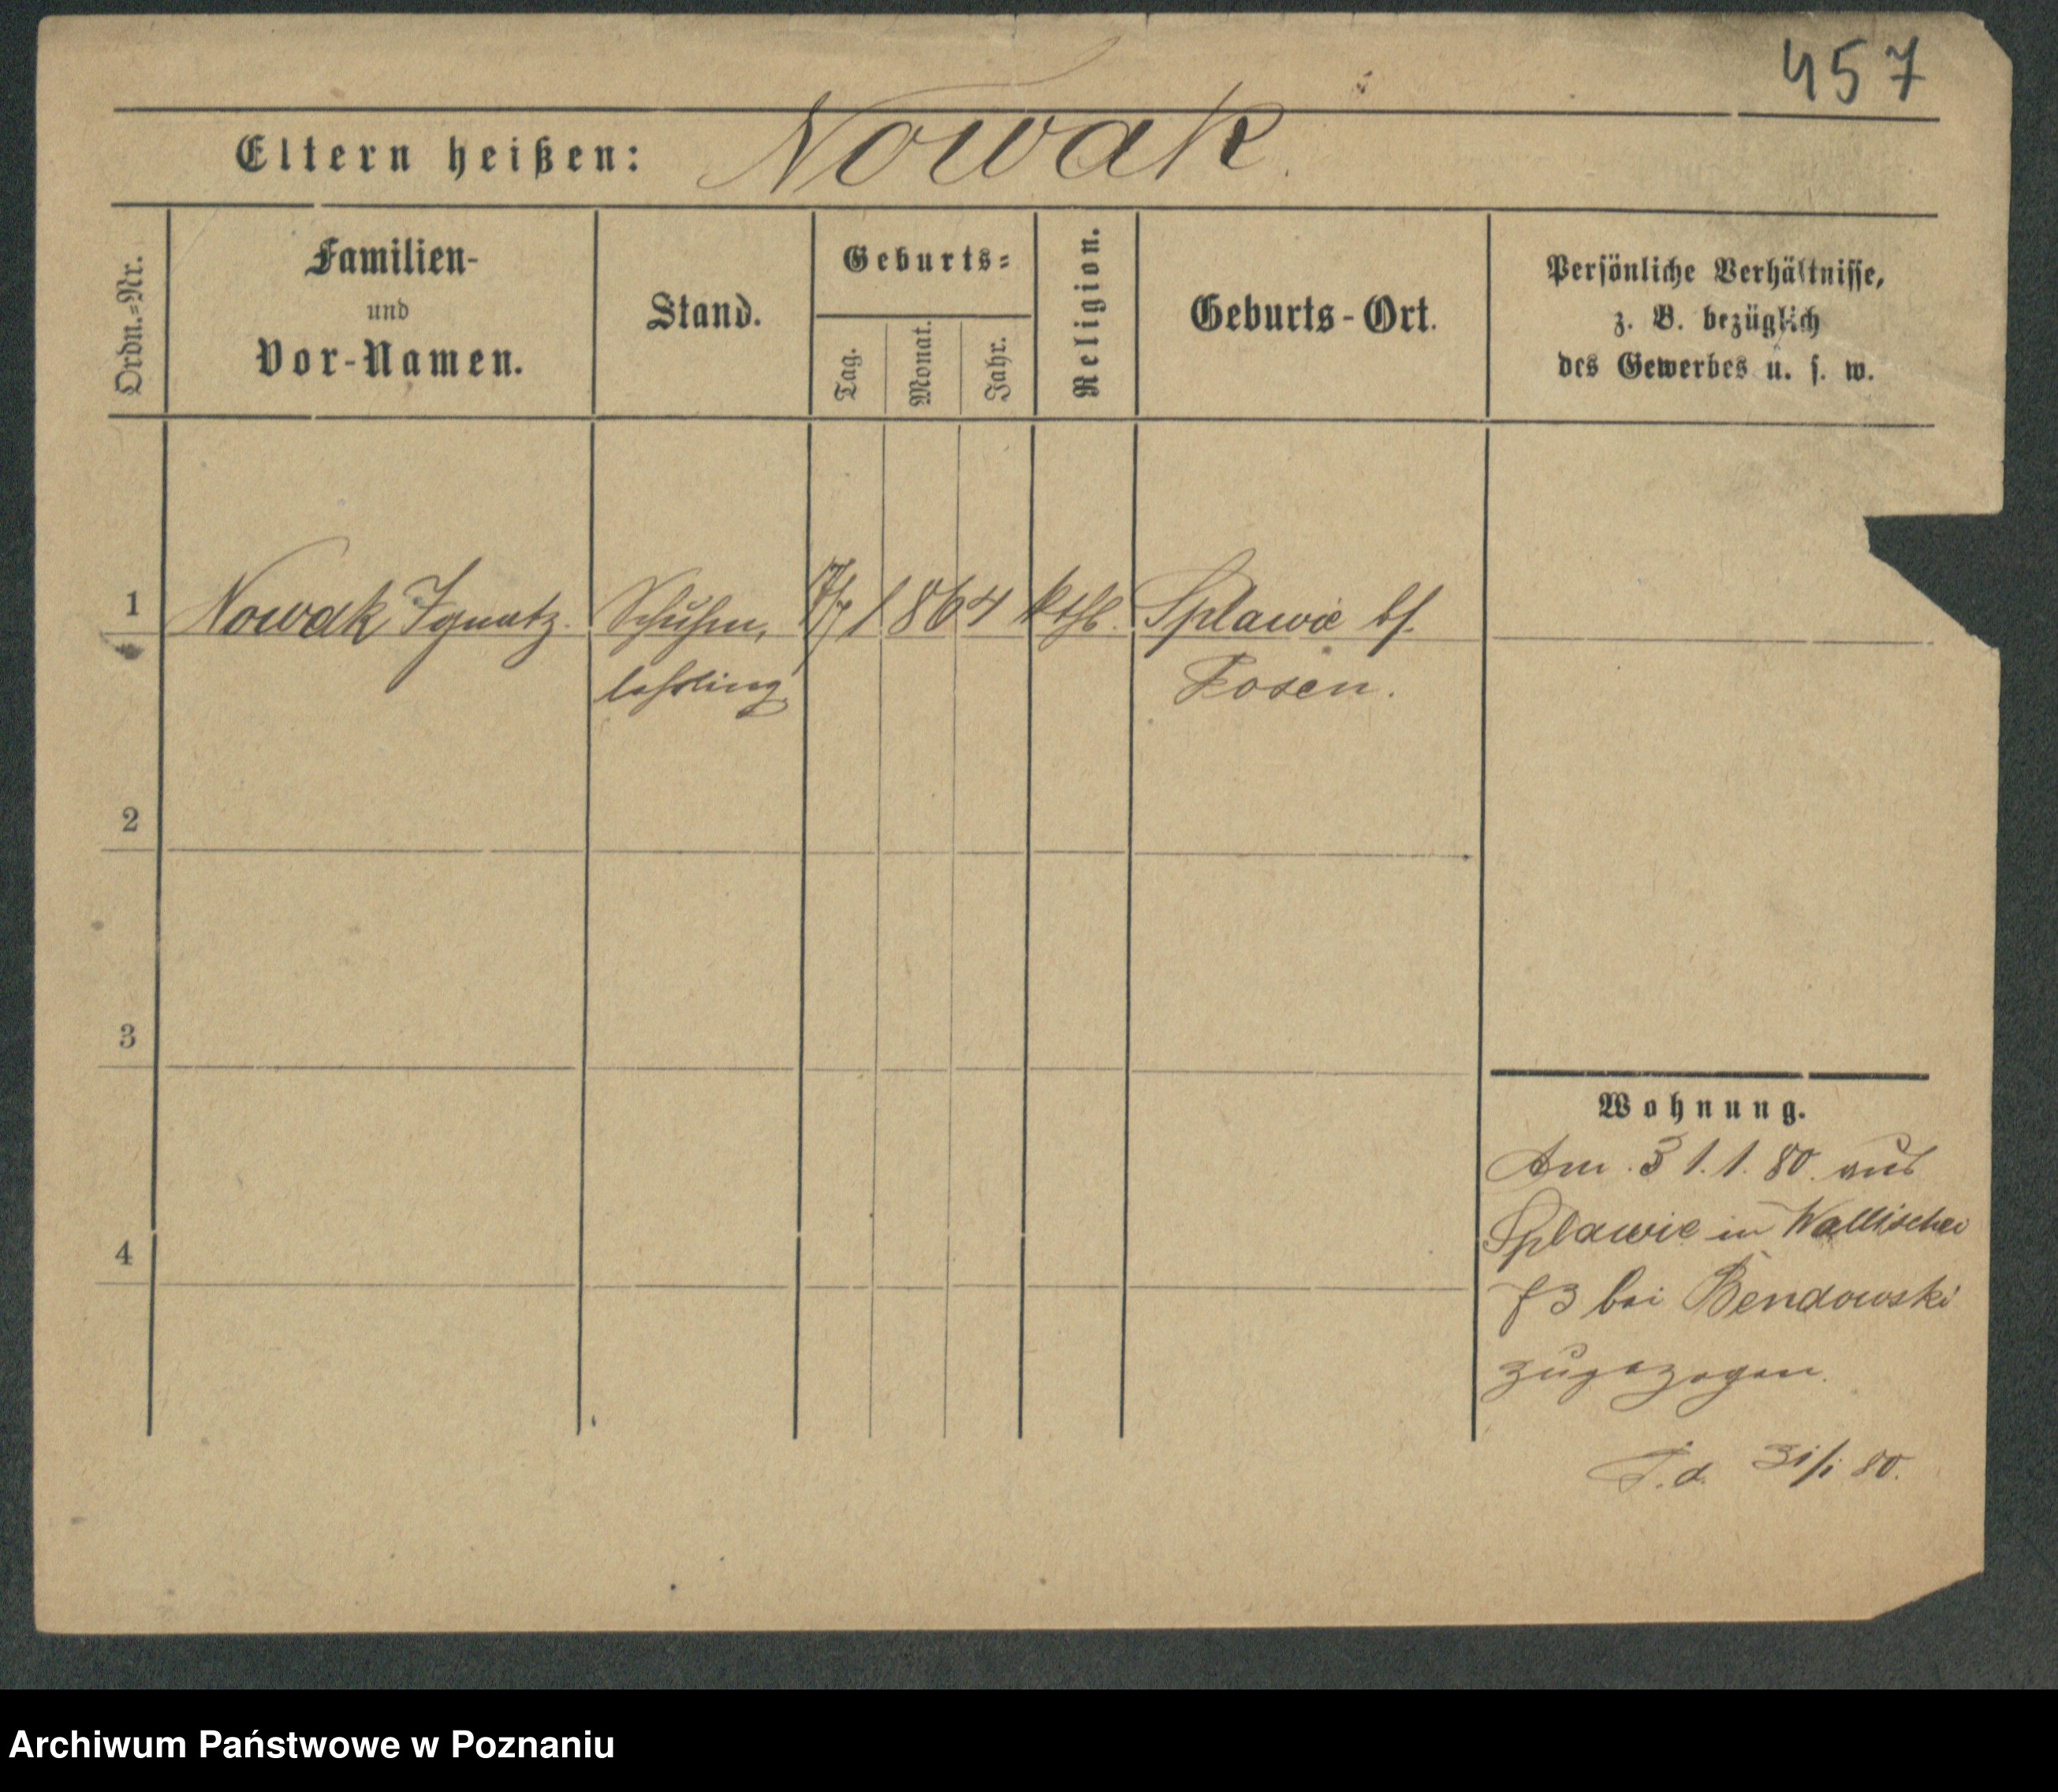 457
Eltern heißen: Nowak.
Ordn.-Nr.
Familien-
und
Vor-Namen.
Stand.
Geburts-
Tag.
Monat.
Jahr.
Religion.
Geburts-Ort.
Persönliche Verhältnisse,
z. B. bezüglich
des Gewerbes u. s. w.
1 Nowak Ignatz. Schuhm, 17/7 1864 kthl. Splawie bf.
lehrling Posen.
2
3
4
Wohnung.
Am 31.1.80. aus
Splawie in Wallischei
73 bei Bendowski
zugezogen.
T. d. 31/1 80.
Archiwum Państwowe w Poznaniu